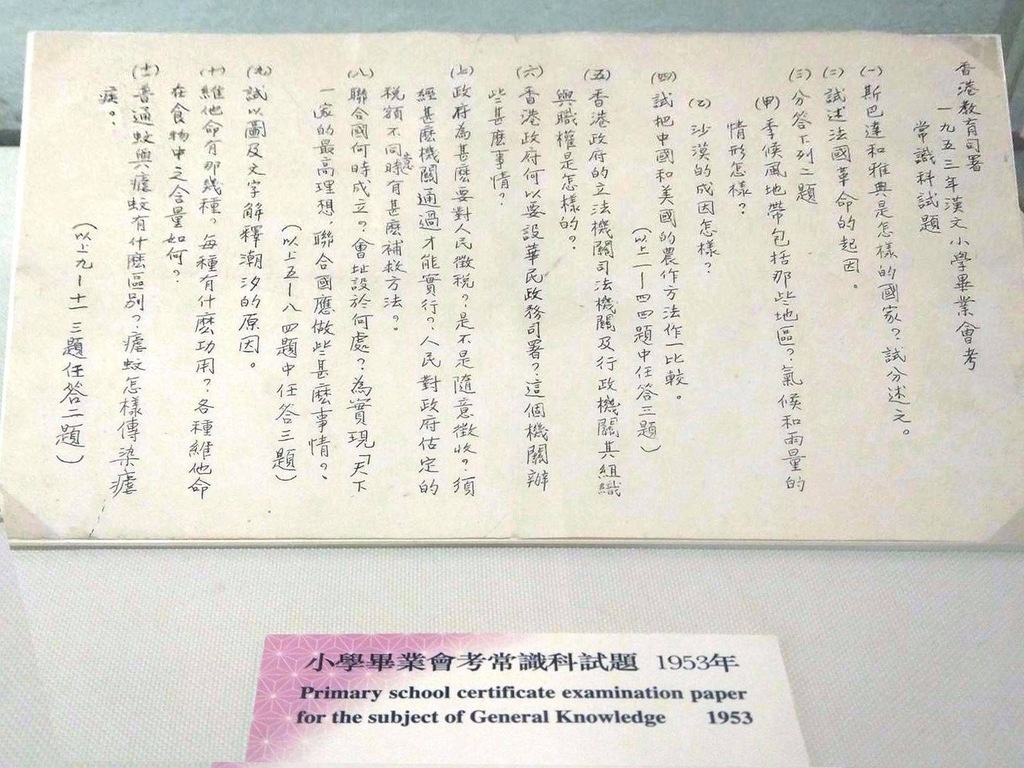 香港教育司署
一九五三年漢文小學畢業會考
常識科試題
(一)斯巴達和雅典是怎樣的國家？試分述之。
(二)試述法國革命的起因。
(三)分答下列二題
(甲)季候風地帶包括那些地區？氣候和雨量的
情形怎樣？
(乙)沙漠的成因怎樣？
(四)試把中國和美國的農作方法作一比較。
(以上一—四四題中任答三題)
(五)香港政府的立法機關司法機關及行政機關其組織
與職權是怎樣的？
(六)香港政府何以要設華民政務司署？這個機關辦
些甚麽事情？
(七)政府為甚麽要對人民徵稅？是不是隨意徵收？須
經甚麽機關通過才能實行？人民對政府估定的
稅額不同意時有甚麽補救方法？
(八)聯合國何時成立？會址設於何處？為實現「天下
一家」的最高理想，聯合國應做些甚麽事情？
(以上五—八四題中任答三題)
(九)試以圖及文字解釋潮汐的原因。
(十)維他命有那幾種？每種有什麽功用？各種維他命
在食物中之含量如何？
(十一)普通蚊與瘧蚊有什麽區別？瘧蚊怎樣傳染瘧
疾？
(以上九—十一三題任答二題)
小學畢業會考常識科試題 1953年
Primary school certificate examination paper
for the subject of General Knowledge 1953